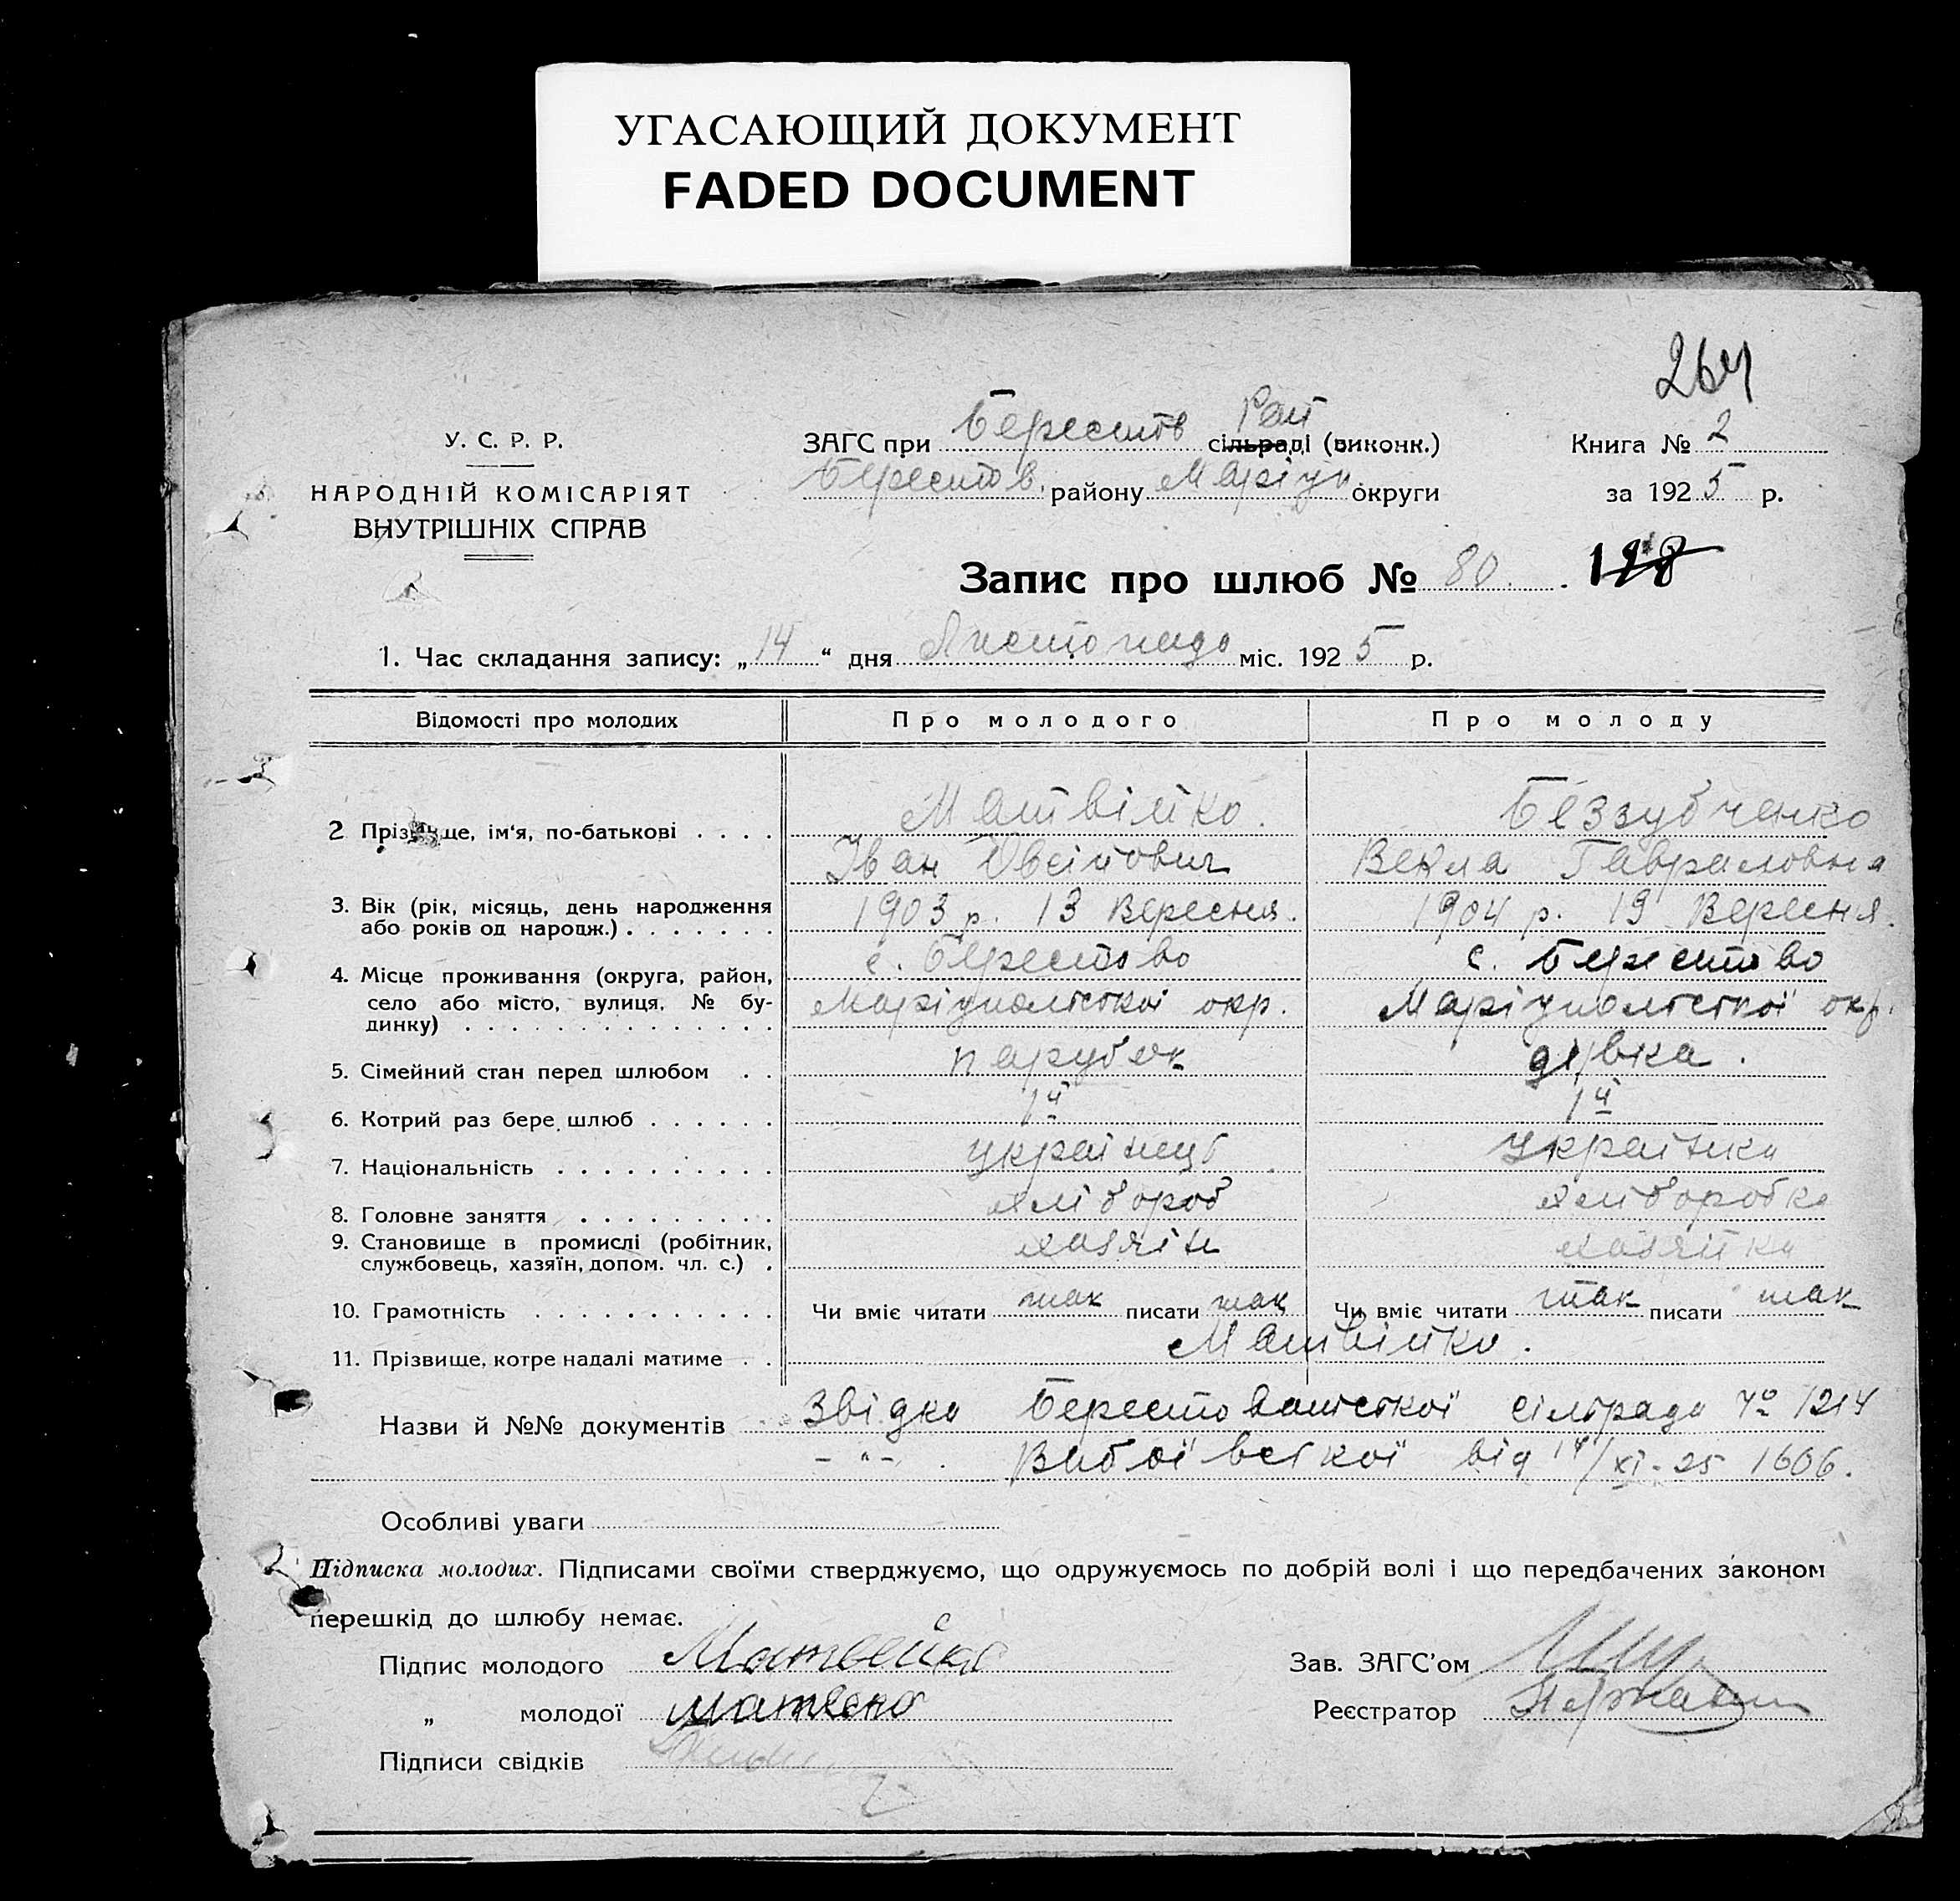 УГАСАЮЩИЙ ДОКУМЕНТ
FADED DOCUMENT
264
У. С. Р. Р.
НАРОДНІЙ КОМІСАРІЯТ
ВНУТРІШНІХ СПРАВ
ЗАГС при Берестов Рай сільраді (виконк.)
Берестов. району Маріуп. округи
Книга № 2
за 1925 р.
Запис про шлюб № 80. 118
1. Час складання запису: „14“ дня Листопада міс. 1925 р.
Відомості про молодих Про молодого Про молоду
2 Прізвище, ім'я, по-батькові . . . . Матвійко. Беззубченко
Іван Овсійович Векла Гавриловна
3. Вік (рік, місяць, день народження або років од народж.) . . . . . . . 1903 р. 13 Вересня. 1904 р. 19 Вересня.
4. Місце проживання (округа, район, село або місто, вулиця, № будинку) . . . . . . . . . . . . . . с. Берестово с. Берестово
Маріупольської окр. Маріупольської окр.
5. Сімейний стан перед шлюбом . . парубок дівка.
6. Котрий раз бере шлюб . . . . . . 1й 1й
7. Національність . . . . . . . . . . українець українка
8. Головне заняття . . . . . . . . . хлібороб хліборобка
9. Становище в промислі (робітник, службовець, хазяїн, допом. чл. с.) . хазяїн хазяйка
10. Грамотність . . . . . . . . . . . Чи вміє читати так писати так Чи вміє читати так писати так
11. Прізвище, котре надалі матиме . . Матвійко.
Назви й №№ документів Звідка Берестовської сільради № 1214
– „ – Вибоївської від 14/XI-25 1606.
Особливі уваги
Підписка молодих. Підписами своїми стверджуємо, що одружуємось по добрій волі і що передбачених законом
перешкід до шлюбу немає.
Підпис молодого Матвейко
„ молодої
Підписи свідків
Зав. ЗАГС'ом
Реєстратор